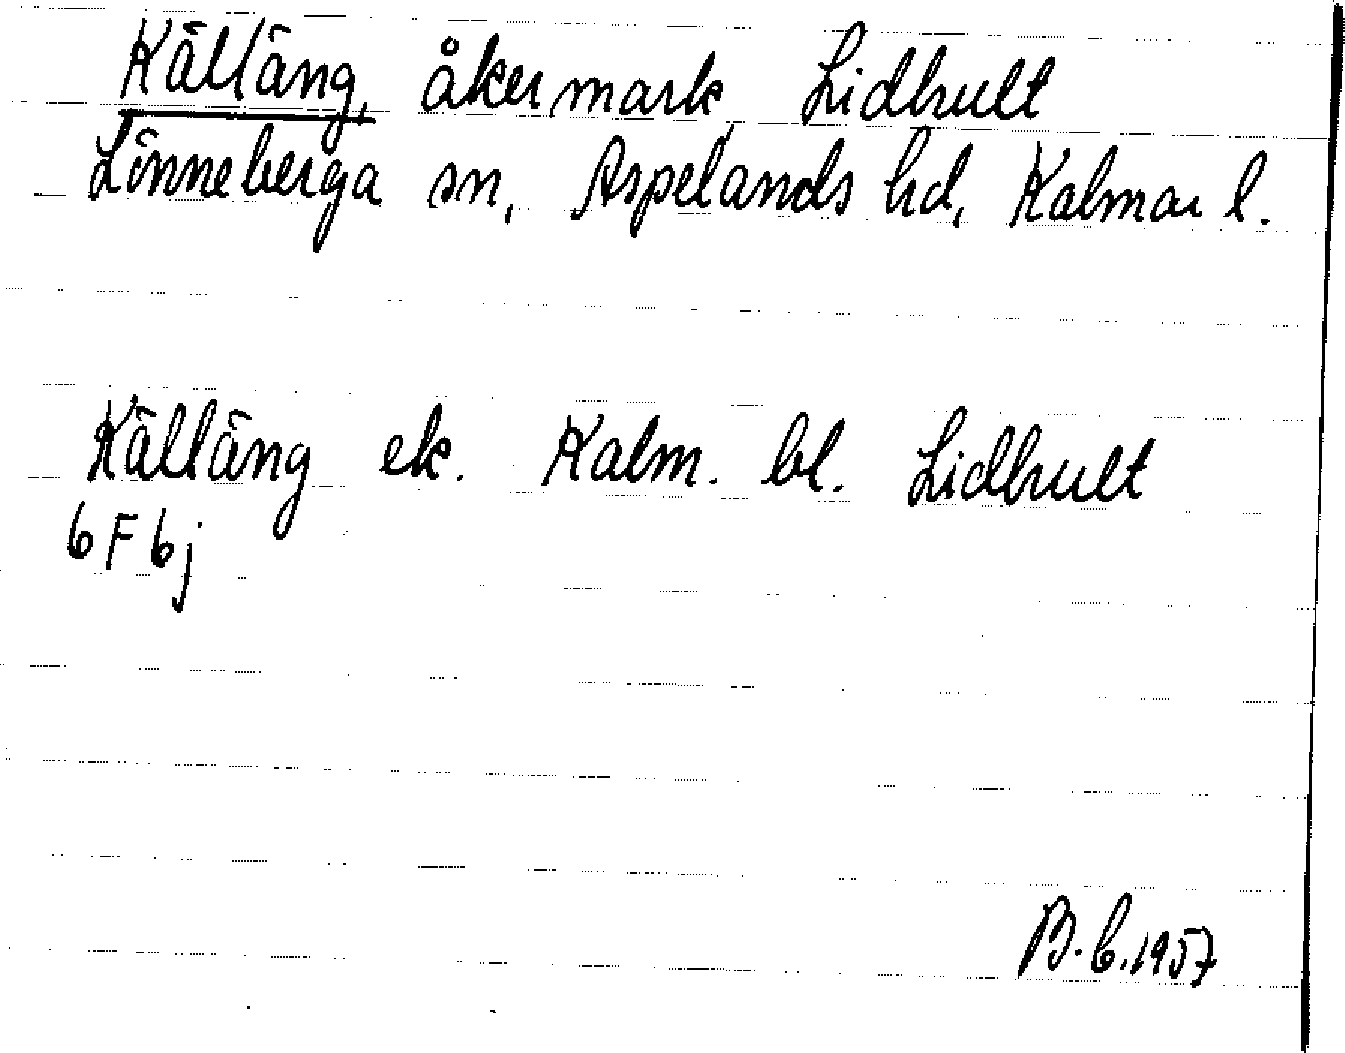 Källäng, åkermark, Lidhult
Lönneberga sn, Aspelands hd, Kalmar l.
Källäng ek. Kalm. bl. Lidhult
6F6j
B.b. 1957